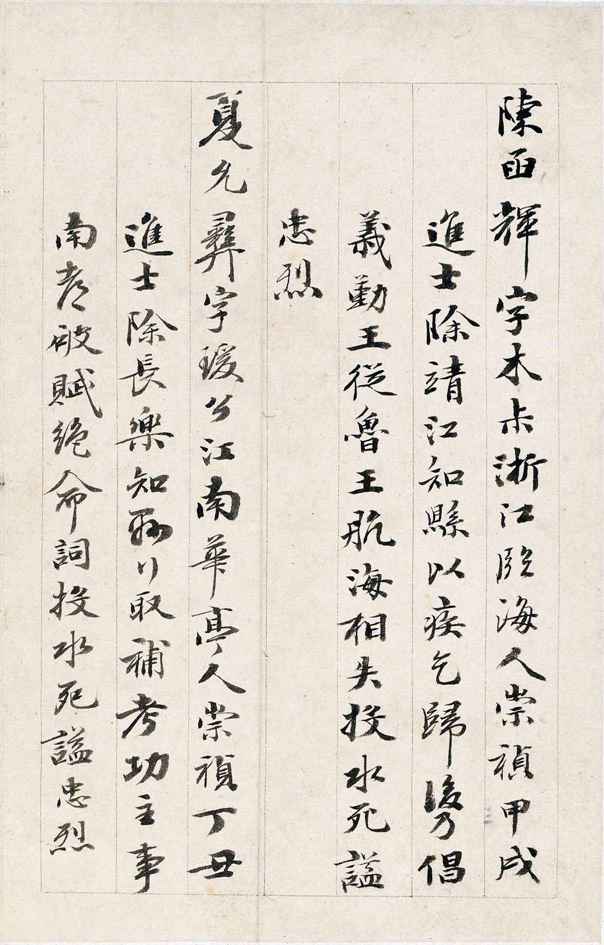 陳函輝字木尗浙江臨海人崇禎甲戌
進士除靖江知縣以疾乞歸後乃倡
義勤王從魯王航海相失投水死謚
忠烈
夏允彝字瑗公江南華亭人崇禎丁丑
進士除長樂知縣行取補考功主事
南都破賦絕命詞投水死謚忠烈